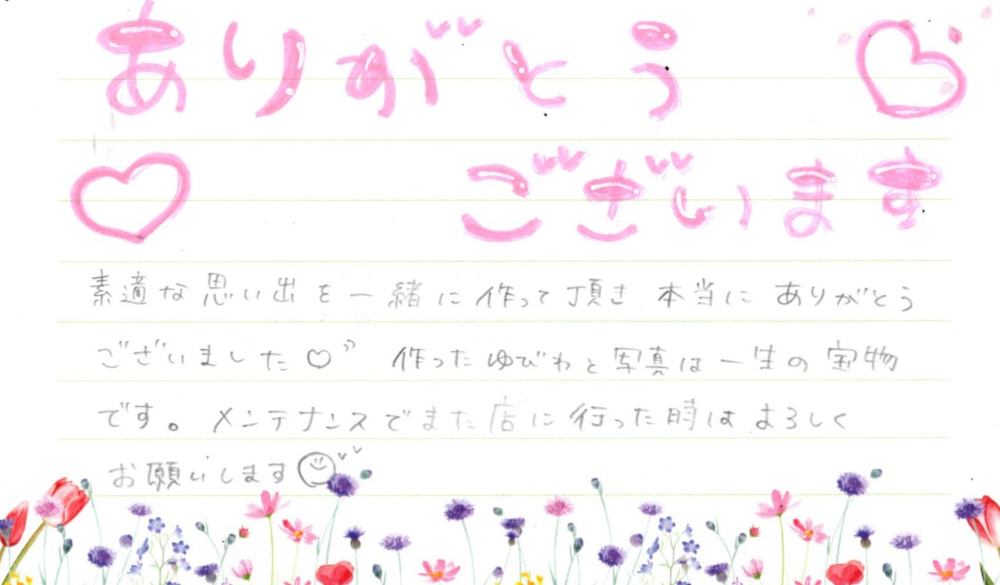 ありがとう♡
♡ございます
素適な思い出を一緒に作って頂き 本当に ありがとう
ございました♡ 作ったゆびわと写真は一生の宝物
です。メンテナンスでまた店に行った時はよろしく
お願いします